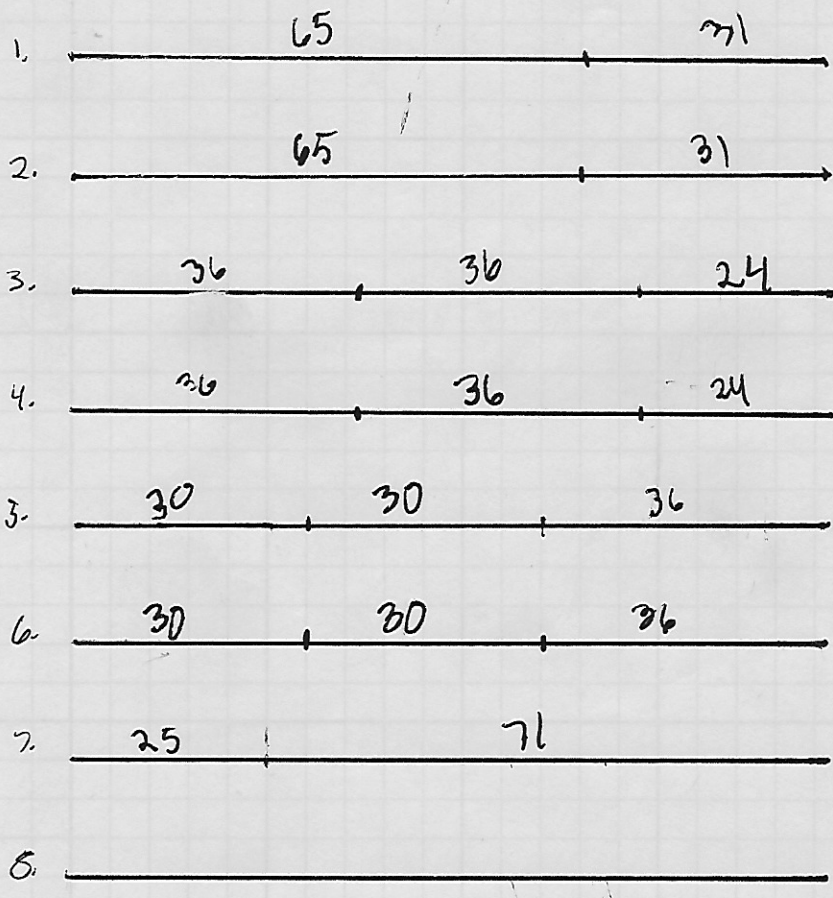 1. 65 31
2. 65 31
3. 36 36 24
4. 36 36 24
5. 30 30 36
6. 30 30 36
7. 25 71
8.